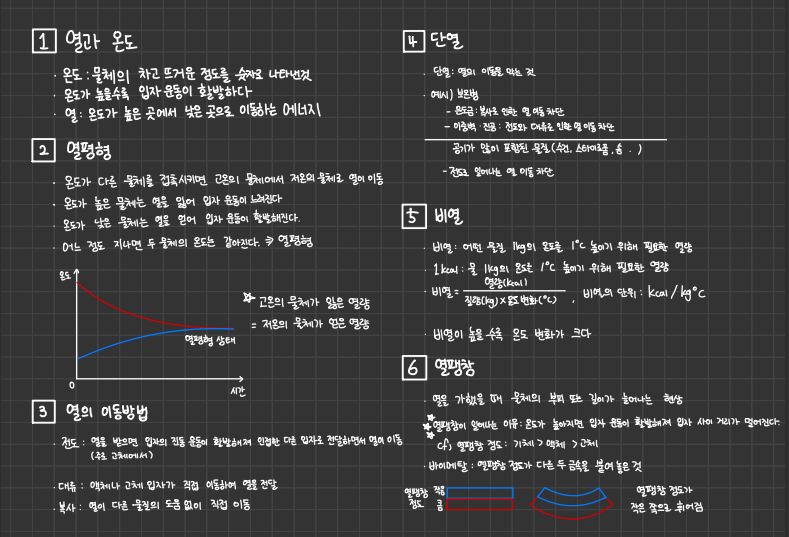 1 열과 온도
· 온도 : 물체의 차고 뜨거운 정도를 숫자로 나타낸것
· 온도가 높을수록 입자 운동이 활발하다
· 열 : 온도가 높은 곳에서 낮은 곳으로 이동하는 에너지
2 열평형
· 온도가 다른 물체를 접촉시키면 고온의 물체에서 저온의 물체로 열이 이동
· 온도가 높은 물체는 열을 잃어 입자 운동이 느려진다
· 온도가 낮은 물체는 열을 얻어 입자 운동이 활발해진다.
· 어느 정도 지나면 두 물체의 온도는 같아진다. ⇒ 열평형
온도
☆ 고온의 물체가 잃은 열량
= 저온의 물체가 얻은 열량
열평형 상태
0
시간
3 열의 이동방법
· 전도 : 열을 받으면 입자의 진동 운동이 활발해져 인접한 다른 입자로 전달하면서 열이 이동
(주로 고체에서)
· 대류 : 액체나 고체 입자가 직접 이동하여 열을 전달
· 복사 : 열이 다른 물질의 도움 없이 직접 이동
4 단열
· 단열 : 열의 이동을 막는 것
· 예시) 보온병
- 은도금 : 복사로 인한 열 이동 차단
- 이중벽 · 진공 : 전도와 대류로 인한 열 이동 차단
공기가 많이 포함된 물질 (수건, 스타이로폼, 솜 . )
- 전도로 일어나는 열 이동 차단
5 비열
· 비열 : 어떤 물질 1kg의 온도를 1°C 높이기 위해 필요한 열량
· 1kcal : 물 1kg의 온도를 1°C 높이기 위해 필요한 열량
· 비열 = 열량(kcal) / 질량(kg) × 온도 변화(°C) , 비열의 단위 : kcal/kg°C
· 비열이 높을수록 온도 변화가 크다
6 열팽창
· 열을 가했을 때 물체의 부피 또는 길이가 늘어나는 현상
☆ 열팽창이 일어나는 이유 : 온도가 높아지면 입자 운동이 활발해져 입자 사이 거리가 멀어진다.
☆ cf) 열팽창 정도 : 기체 > 액체 > 고체
· 바이메탈 : 열팽창 정도가 다른 두 금속을 붙여 놓은 것
열팽창 작음
정도 큼
열팽창 정도가
작은 쪽으로 휘어짐